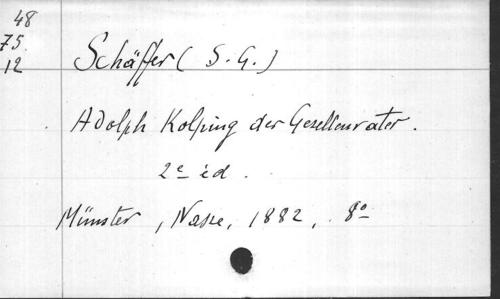 48
75
12
Schäffer ( S. G. )
Adolph Kolping der Gesellenvater.
2e éd.
Münster, Nasse, 1882, 8o